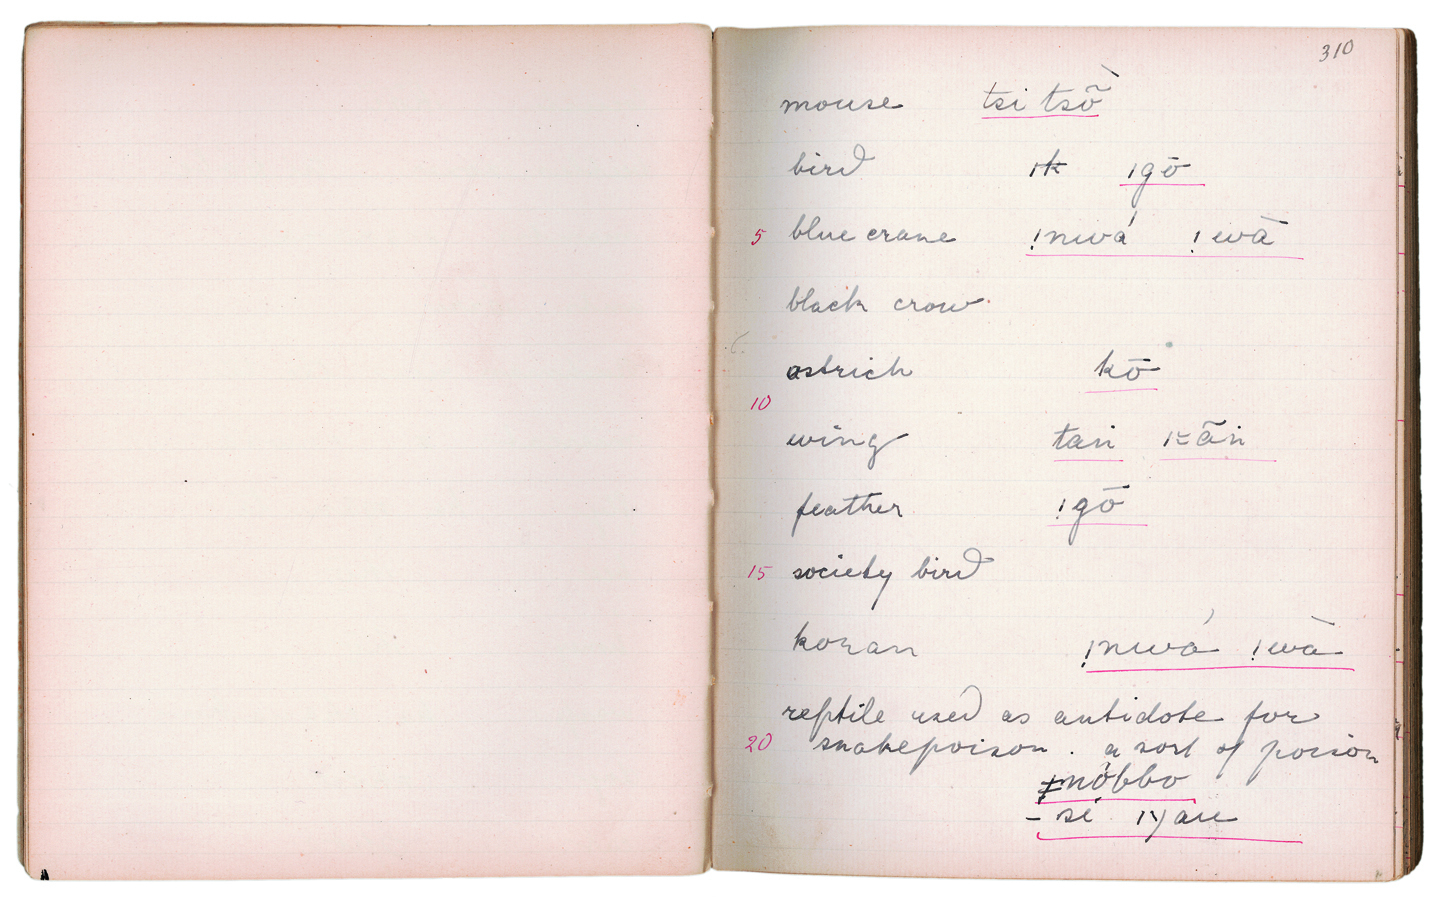 310
mouse tsi tsȭ̀
bird ǀk ǀgō
5 blue crane ǃnwá ǃwā
black crow
ostrich kō
10
wing tan
feather ǃgō
15 society bird
koran ǃnwá ǃwà
reptile used as antidote for
20 snakepoison. a sort of poison
ǂmȯbbo
- sé